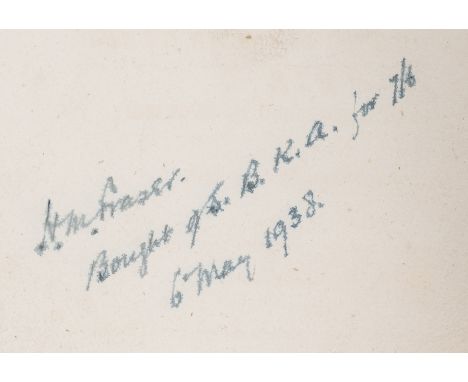 H.M. Fraser.
Bought of B.K.A. for 7/6
6 May 1938.